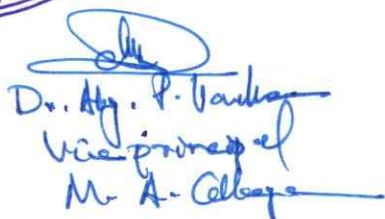 Dr. Aby. P. Varghese
Vice principal
M. A. College